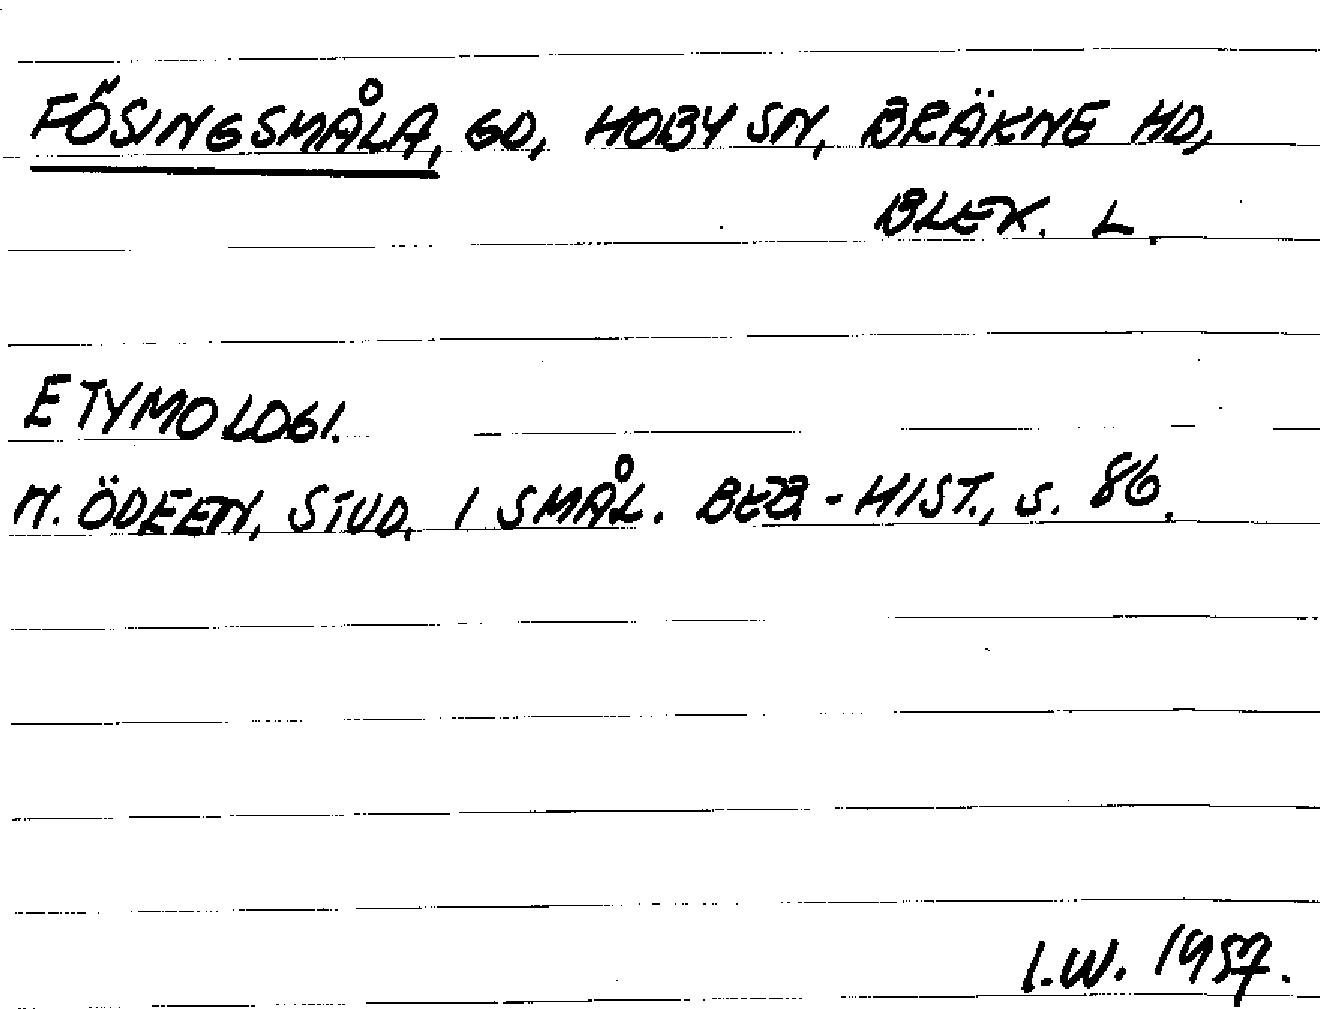 FÖSINGSMÅLA, GD, HOBY SN, BRÄKNE HD,
BLEK. L.
ETYMOLOGI.
N. ÖDEEN, STUD. I SMÅL. BEB.-HIST., S. 86.
I.W. 1957.